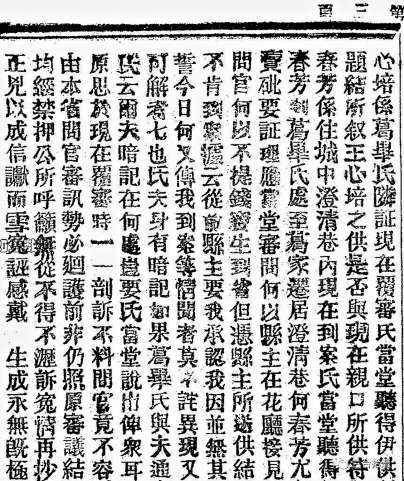 第三頁
心培係葛畢氏隣証現在覆審氏當堂聽得伊供
題結所叙王心培之供是否與現在親口所供符
春芳係住城中澄清巷內現在到案氏當堂聽得
春芳到葛畢氏處至葛家遷居澄清巷何春芳尤
賣砒要証理應當堂審問何以縣主在花廳接見
問官何以不提錢寶生到省但憑縣主所送供結
不肯到案據云從前縣主要我承認我因並無其
誓今日何又傳我到案等情聞者莫不詫異現又
可解者七也氏夫身有暗記如果葛畢氏與夫通
氏云爾夫暗記在何處豈要氏當堂說出俾衆耳
原思於現在覆審時一一剖訴不料問官竟不容
由本省問官審訊勢必廻護前非仍照原審議結
均經禁押公所呼籲無從不得不瀝訴冤情再抄
正兇以成信讞而雪冤誣感戴　生成永無旣極